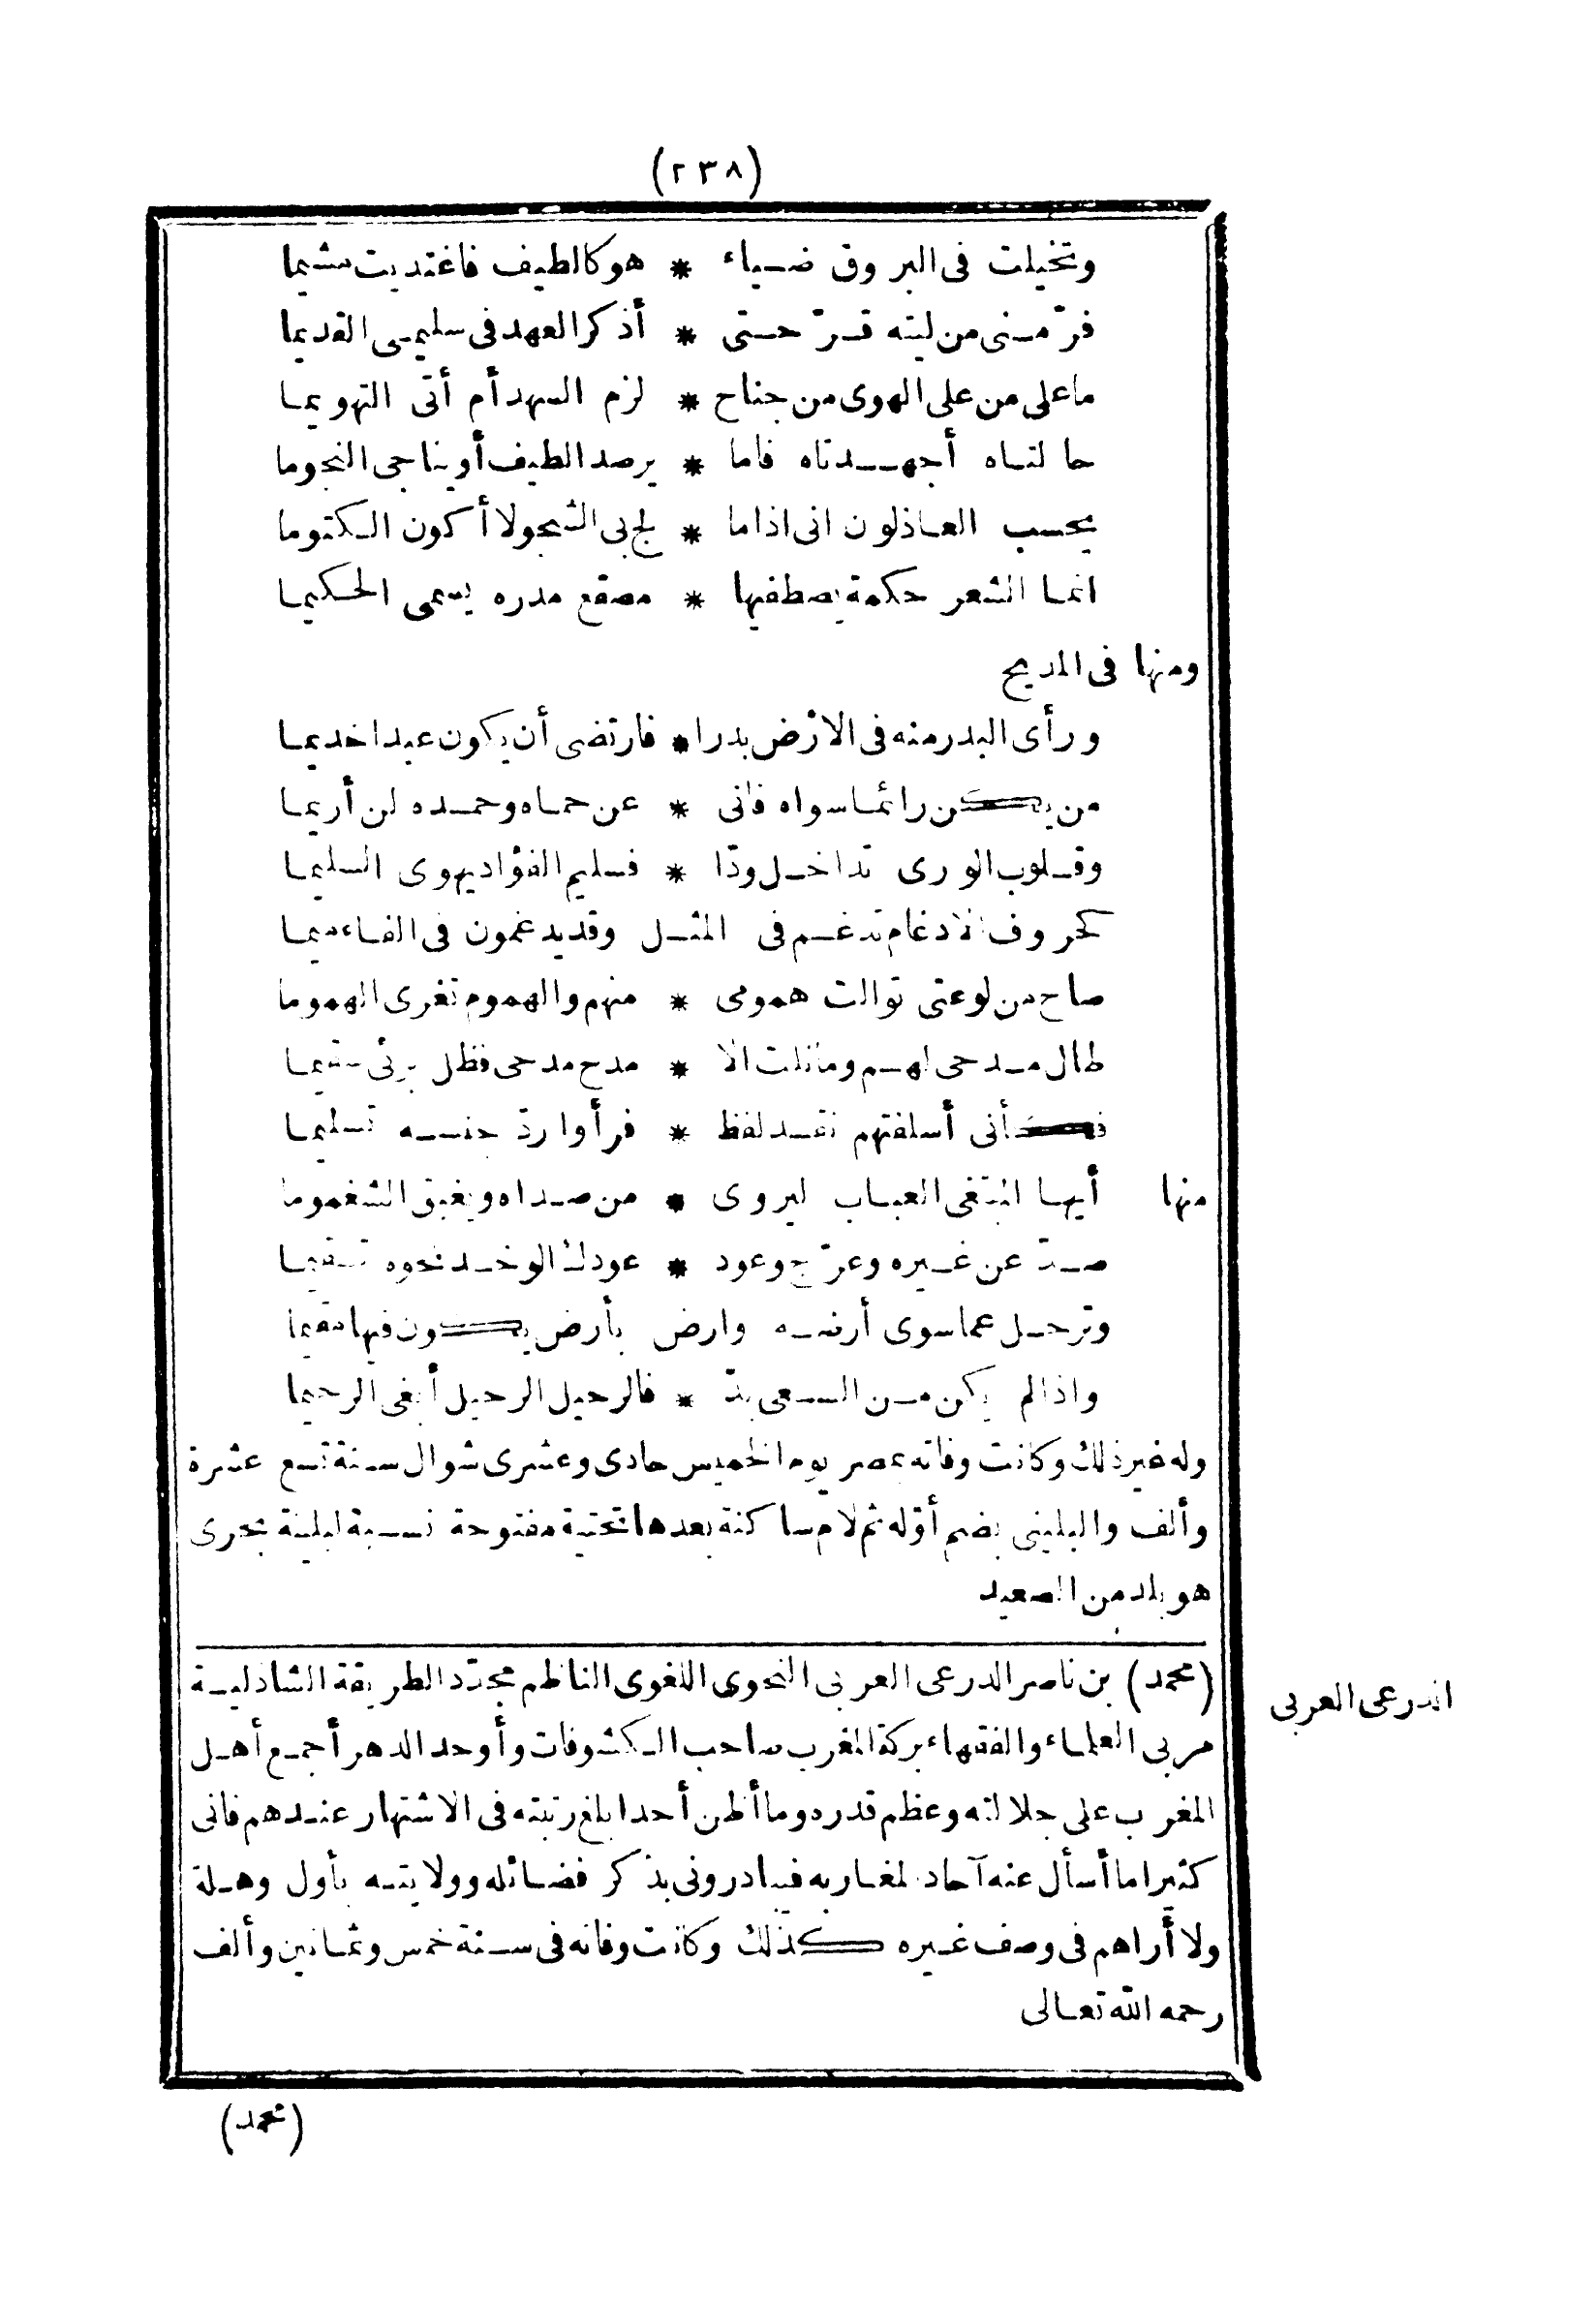 (٢٣٨)
وتخيلت فى البروق ضياء * هو كالطيف فاغتديت مشيما
فرّ منى من ليته قرّ حتى * أذكر العهد فى سليمى القديما
ما على من على الهوى من جناح * لزم السهد أم أتى التهويما
حالتاه أجهدتاه فاما * يرصد الطيف أو يناجى النجوما
يحسب العاذلون انى اذا ما * لج بى الشجو لا أكون الكتوما
انما الشعر حكمة يصطفيها * مصقع مدره يسمى الحكيما
ومنها فى المديح
ورأى البدر منه فى الارض بدرا * فارتضى أن يكون عبدا خديما
من يكن رائما سواه فانى * عن حماه وحمده لن أريما
وقلوب الورى تداخل ودّا * فسليم الفؤاد يهوى السليما
كحروف الادغام تدغم فى المثل وقد يدغمون فى الفاء ميما
صاح من لوعتى توالت همومى * منهم والهموم تغرى الهموما
طال مدحى لهم وما نلت الا * مدح مدحى فظل يرئى سقيما
فكأنى أسلفتهم نقد لفظ * فرأوا ردّ جنسه تسليما
منها أيها المبتغى العباب ليروى * من صداه ويغبق الشغموما
صدّ عن غيره وعرّج وعود * عودك الوخد نحوه تستقيما
وترحل عما سوى أرضه وارض بأرض يكون فيها مقيما
واذا لم يكن من السعى بدّ * فالرحيل الرحيل أبغى الرحيما
وله غير ذلك وكانت وفاته بمصر يوم الخميس حادى وعشرى شوال سنة تسع عشرة
وألف والبلينى بضم أوّله ثم لام ساكنة بعدها تحتية مفتوحة نسبة لبلينة بحرى
هو بلد من الصعيد
(محمد) بن ناصر الدرعى العربى النحوى اللغوى الناظم مجدّد الطريقة الشاذلية
الدرعى العربى
مربى العلماء والفقهاء بركة المغرب صاحب الكشوفات وأوحد الدهر أجمع أهل
المغرب على جلالته وعظم قدره وما أظن أحدا بلغ رتبته فى الاشتهار عندهم فانى
كثيرا ما أسأل عنه آحاد المغاربه فيبادرونى بذكر فضائله وولايته بأول وهلة
ولا أراهم فى وصف غيره كذلك وكانت وفاته فى سنة خمس وثمانين وألف
رحمه الله تعالى
(محمد)